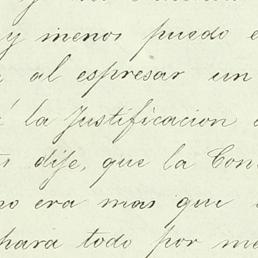 y menos puedo
al espresar un
la Justificacion
dije, que la Con
no era mas que
para todo por me